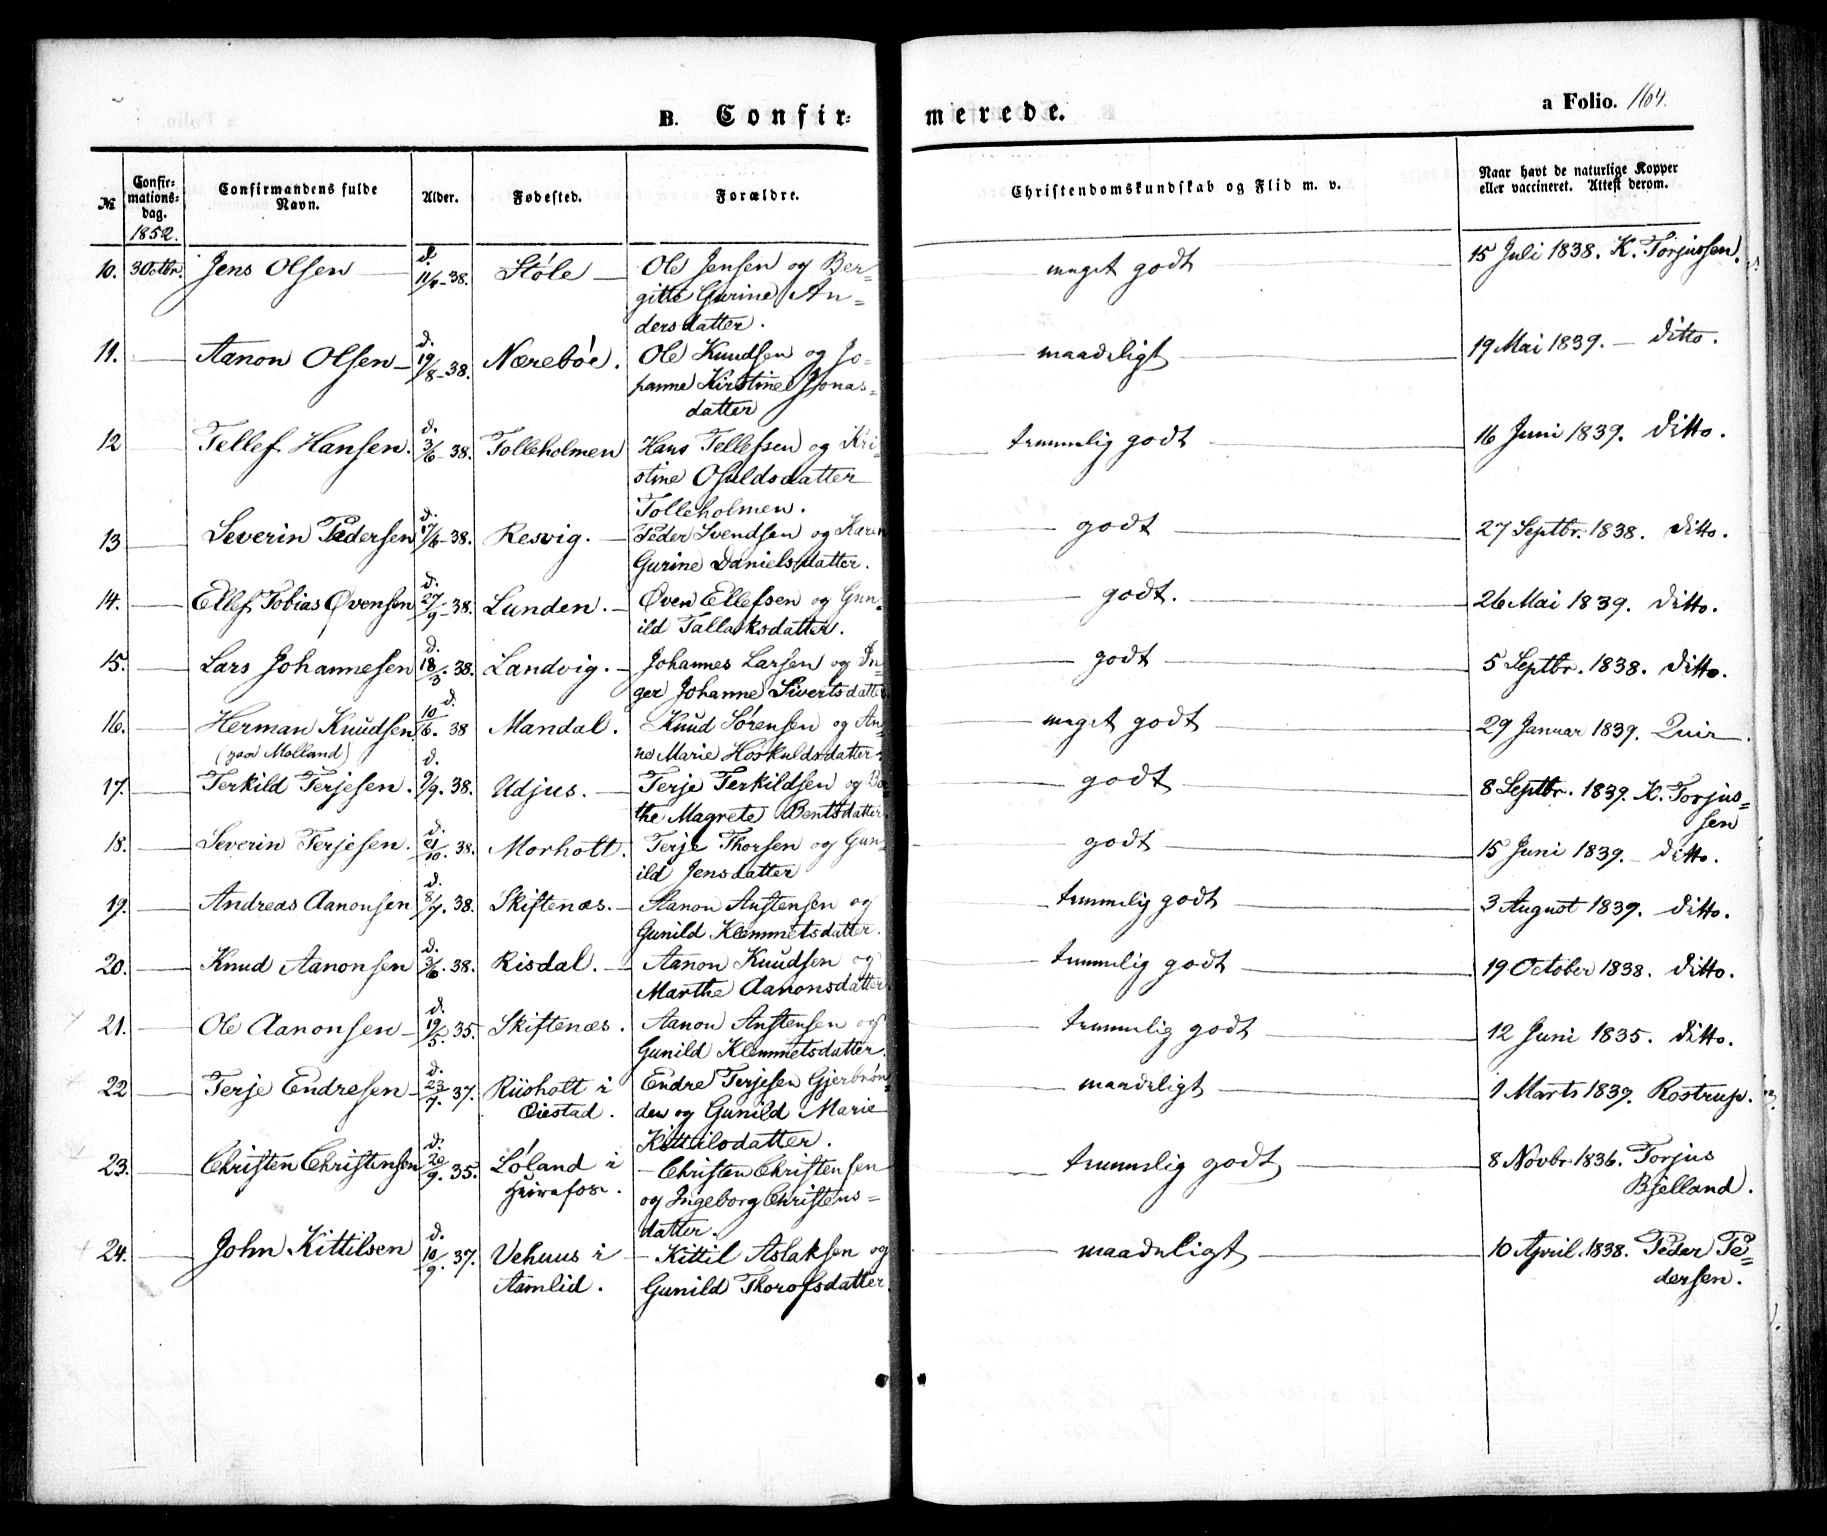 B. Confir- merede. a Folio. 164.
№ Confirmationsdag. Confirmandens fulde Navn. Alder. Fødested. Forældre. Christendomskundskab og Flid m. v. Naar havt de naturlige Kopper eller vaccineret. Attest derom.
1852.
10. 3 Octbr. Jens Olsen d. 11/4-38. Støle Ole Jensen og Ber- meget godt 15 Juli 1838. K. Torjussen.
gitte Gurine An-
dersdatter.
11. Aanon Olsen d. 19/8-38. Nærebøe. Ole Knudsen og Jo- maadeligt 19 Mai 1839. ditto.
hanne Kirstine Jonas-
datter
12 Tellef Hansen. d. 3/6 38. Tolleholmen Hans Tellefsen og Kri- temmelig godt 16 Juni 1839. ditto.
stine Osuldsdatter
Tolleholmen.
13 Severin Pedersen d. 17/6-38. Resvig. Peder Svendsen og Karen godt 27 Septbr. 1838. ditto.
Gurine Danielsdatter.
14. Ellef Tobias Øvensen d. 27/9-38. Lunden. Øven Ellefsen og Gun- godt. 26 Mai 1839. ditto.
ild Tallaksdatter.
15. Lars Johannesen d. 18/3. 38. Landvig. Johannes Larsen og In- godt 5 Septbr. 1838. ditto.
ger Johanne Sivertsdatter
16. Herman Knudsen d. 10/6. 38 Mandal. Knud Sørensen og An- meget godt 29 Januar 1839. Quir.
(paa Molland) ne Marie Hoskuldsdatter.
17. Terkild Terjesen. d. 9/9. 38. Udjus. Terje Terkildsen og Ber- godt 8 Septbr. 1839. K. Torjus-
the Magrete Bentsdatter. sen
18. Severin Terjesen. d. 21/10. 38. Morholt. Terje Thorsen og Gun- godt 15 Juni 1839. ditto.
ild Jensdatter
19. Andreas Aanonsen d. 8/7. 38. Skiftenæs. Aanon Anstensen og temmelig godt 3 August 1839. ditto.
Gunild Klemmetsdatter.
20. Knud Aanonsen d. 3/6. 38. Risdal. Aanon Knudsen og temmelig godt 19 October 1838. ditto.
Marthe Aanonsdatter
21. Ole Aanonsen d. 19/5. 35 Skiftenæs. Aanon Anstensen og temmelig godt 12 Juni 1835. ditto.
Gunild Klemmetsdatter.
22 Terje Endresen d. 23/7. 37. Riisholt i Endre Terjesen Gjerbrøn- maadeligt 1 Marts 1839. Rostrup.
Øiestad. den og Gunild Marie
Kittilsdatter.
23. Christen Christensen d. 20/9. 35. Løland i Christen Christensen temmelig godt 8 Novbr 1836. Torjus
og Ingeborg Christens- Bjelland.
datter.
24. John Kittilsen d. 10/9. 37. Vehuus i Kittil Aslaksen og maadeligt 10 April. 1838. Peder Pe-
Aamlid. Gunild Thorofsdatter dersen.